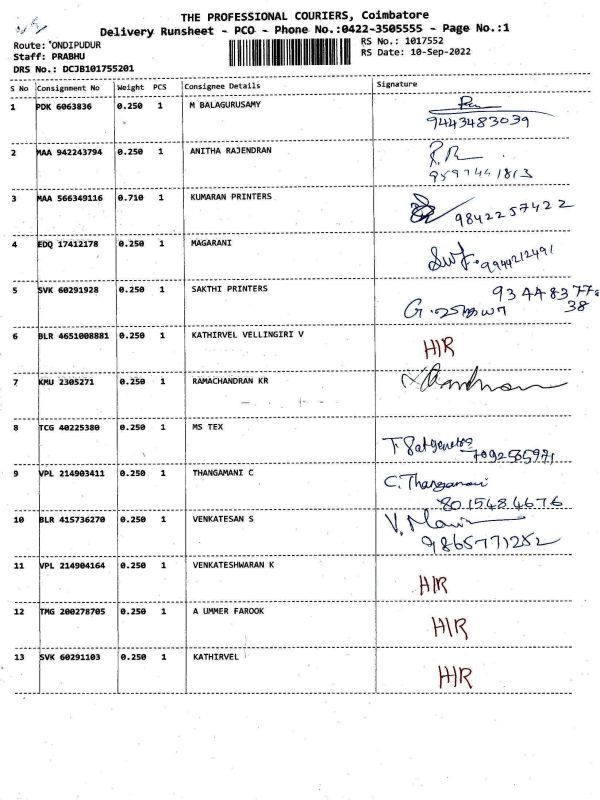 THE PROFESSIONAL COURIERS, Coimbatore
Delivery Runsheet - PCO - Phone No.:0422-3505555 - Page No.:1
Route: ONDIPUDUR RS No.: 1017552
Staff: PRABHU RS Date: 10-Sep-2022
DRS No.: DCJB101755201
S No Consignment No Weight PCS Consignee Details Signature
1 PDK 6063836 0.250 1 M BALAGURUSAMY
9443483039
2 MAA 942243794 0.250 1 ANITHA RAJENDRAN
9597441813
3 MAA 566349116 0.710 1 KUMARAN PRINTERS
9842257422
4 EDQ 17412178 0.250 1 MAGARANI
9944212491
5 SVK 60291928 0.250 1 SAKTHI PRINTERS 93448377
38
6 BLR 4651008881 0.250 1 KATHIRVEL VELLINGIRI V
H/R
7 KMU 2305271 0.250 1 RAMACHANDRAN KR
8 TCG 40225380 0.250 1 MS TEX
9 VPL 214903411 0.250 1 THANGAMANI C C. Thangamani
8015484676
10 BLR 415736270 0.250 1 VENKATESAN S
9865771252
11 VPL 214904164 0.250 1 VENKATESHWARAN K
H/R
12 TMG 200278705 0.250 1 A UMMER FAROOK
H/R
13 SVK 60291103 0.250 1 KATHIRVEL
H/R